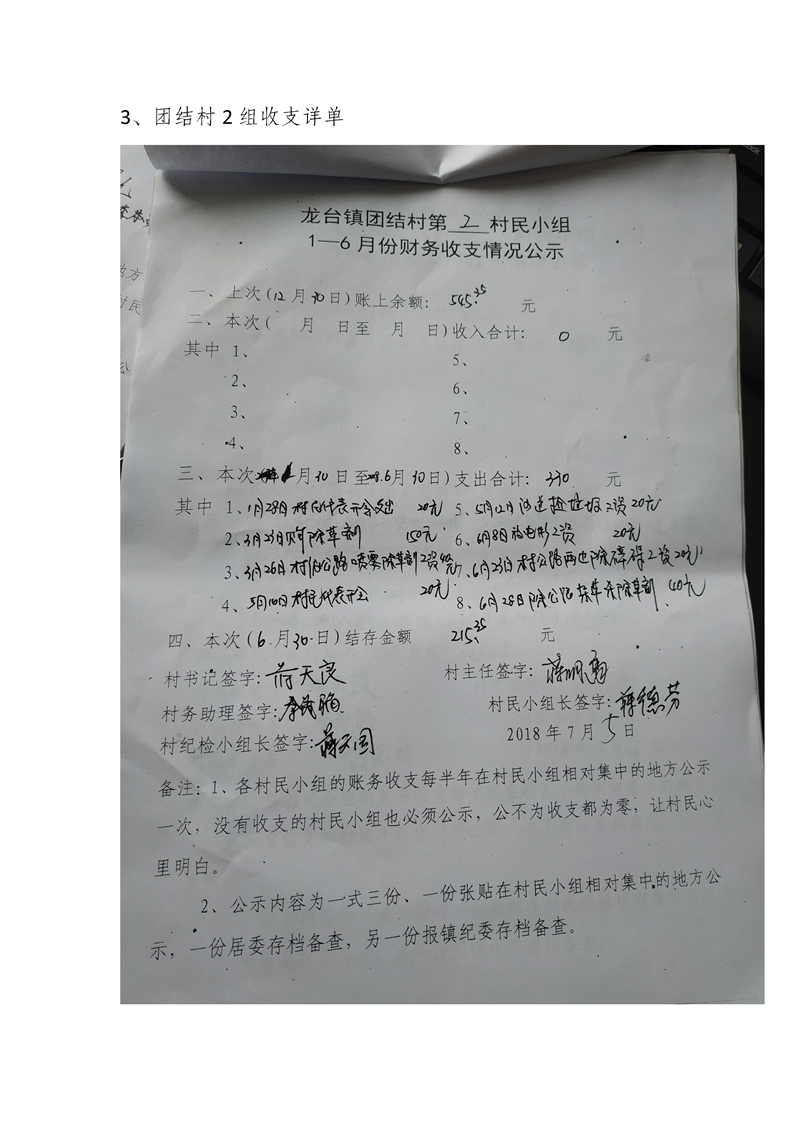 3、团结村2组收支详单
龙台镇团结村第 2 村民小组
1—6月份财务收支情况公示
一、上次(12月30日)账上余额: 545.35 元
二、本次( 月 日至 月 日)收入合计: 0 元
其中 1、 5、
2、 6、
3、 7、
4、 8、
三、本次 月30日至 6月30日)支出合计: 330 元
其中 1、1月28日村民代表开会支出 20元 5、5月12日 工资20元
2、3月23日购除草剂 150元 6、6月8日放电影工资 20元
3、3月26日村 公路喷雾除草剂工资 7、6月23日村公路两边除障碍工资20元
4、5月10日村民代表开会 20元 8、6月28日除公路 草 除草剂 40元
四、本次(6月30日)结存金额 215.35 元
村书记签字:蒋天良 村主任签字:蒋
村务助理签字:李 村民小组长签字:蒋德芬
村纪检小组长签字:蒋 国 2018年7月5日
备注:1、各村民小组的账务收支每半年在村民小组相对集中的地方公示
一次,没有收支的村民小组也必须公示,公不为收支都为零,让村民心
里明白。
2、公示内容为一式三份、一份张贴在村民小组相对集中的地方公
示,一份居委存档备查,另一份报镇纪委存档备查。